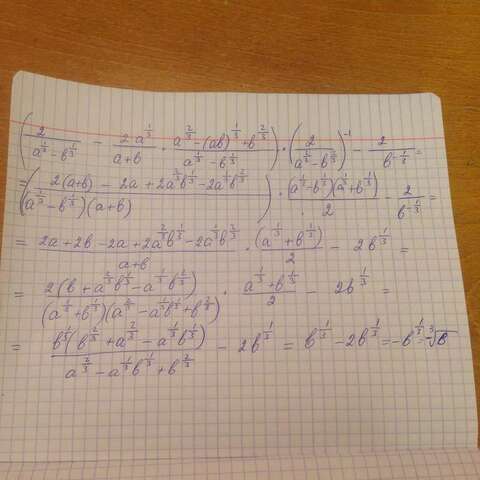 (2/(a^(1/3) - b^(1/3)) - (2a^(1/3))/(a+b) · (a^(2/3) - (ab)^(1/3) + b^(2/3))/(a^(1/3) - b^(1/3))) · (2/(a^(2/3) - b^(2/3)))^(-1) - 2/b^(-1/3) =
= ((2(a+b) - 2a + 2a^(2/3)b^(1/3) - 2a^(1/3)b^(2/3))/((a^(1/3) - b^(1/3))(a+b))) · ((a^(1/3) - b^(1/3))(a^(1/3) + b^(1/3)))/2 - 2/b^(-1/3) =
= (2a + 2b - 2a + 2a^(2/3)b^(1/3) - 2a^(1/3)b^(2/3))/(a+b) · (a^(1/3) + b^(1/3))/2 - 2b^(1/3) =
= (2(b + a^(2/3)b^(1/3) - a^(1/3)b^(2/3)))/((a^(1/3) + b^(1/3))(a^(2/3) - a^(1/3)b^(1/3) + b^(2/3))) · (a^(1/3) + b^(1/3))/2 - 2b^(1/3) =
= (b^(1/3)(b^(2/3) + a^(2/3) - a^(1/3)b^(1/3)))/(a^(2/3) - a^(1/3)b^(1/3) + b^(2/3)) - 2b^(1/3) = b^(1/3) - 2b^(1/3) = -b^(1/3) = -∛b